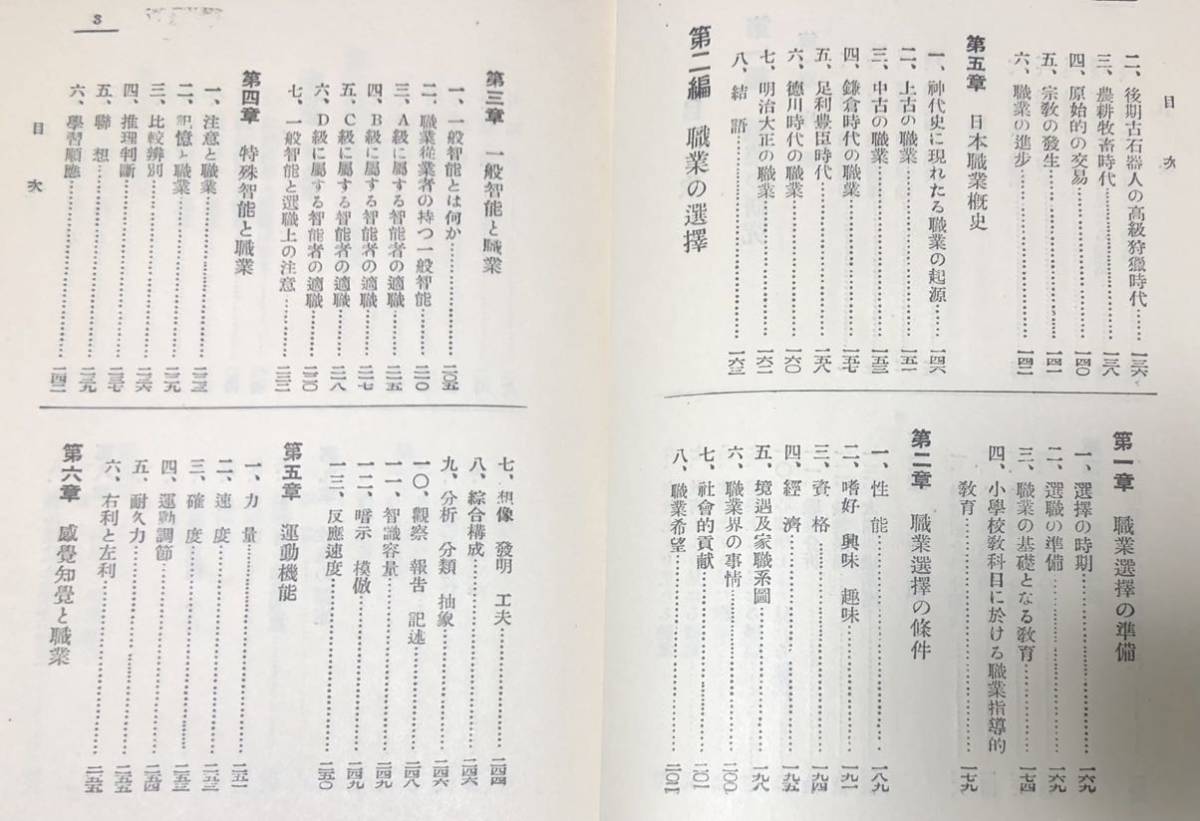 目次
二、後期古石器人の高級狩獵時代……一三六
三、農耕牧畜時代……一三八
四、原始的の交易……一四〇
五、宗教の發生……一四一
六、職業の進步……一四二
第五章 日本職業槪史
一、神代史に現れたる職業の起源……一四六
二、上古の職業……一五一
三、中古の職業……一五三
四、鎌倉時代の職業……一五七
五、足利豊臣時代……一五八
六、德川時代の職業……一六〇
七、明治大正の職業……一六二
八、結語……一六三
第二編 職業の選擇
第一章 職業選擇の準備
一、選擇の時期……一六九
二、選職の準備……一六九
三、職業の基礎となる敎育……一七四
四、小學校敎科目に於ける職業指導的
敎育……一七九
第二章 職業選擇の條件
一、性能……一八九
二、嗜好 興味 趣味……一九一
三、資格……一九四
四、經濟……一九五
五、境遇及家職系圖……一九八
六、職業界の事情……二〇〇
七、社會的貢献……二〇一
八、職業希望……二〇二
3
第三章 一般智能と職業
一、一般智能とは何か……二〇五
二、職業從業者の持つ一般智能……二一〇
三、A級に屬する智能者の適職……二一五
四、B級に屬する智能者の適職……二一七
五、C級に屬する智能者の適職……二一八
六、D級に屬する智能者の適職……二二〇
七、一般智能と選職上の注意……二三二
第四章 特殊智能と職業
一、注意と職業……二三三
二、記憶と職業……二三九
三、比較辨別……二三六
四、推理判斷……二三七
五、聯想……二三九
六、學習順應……二四二
目次
七、想像 發明 工夫……二四四
八、綜合構成……二四六
九、分析 分類 抽象……二四六
一〇、觀察 報告 記述……二四八
一一、智識容量……二四九
一二、暗示 模倣……二四九
一三、反應速度……二五〇
第五章 運動機能
一、力量……二五一
二、速度……二五三
三、確度……二五三
四、運動調節……二五四
五、耐久力……二五五
六、右利と左利……二五五
第六章 感覺知覺と職業